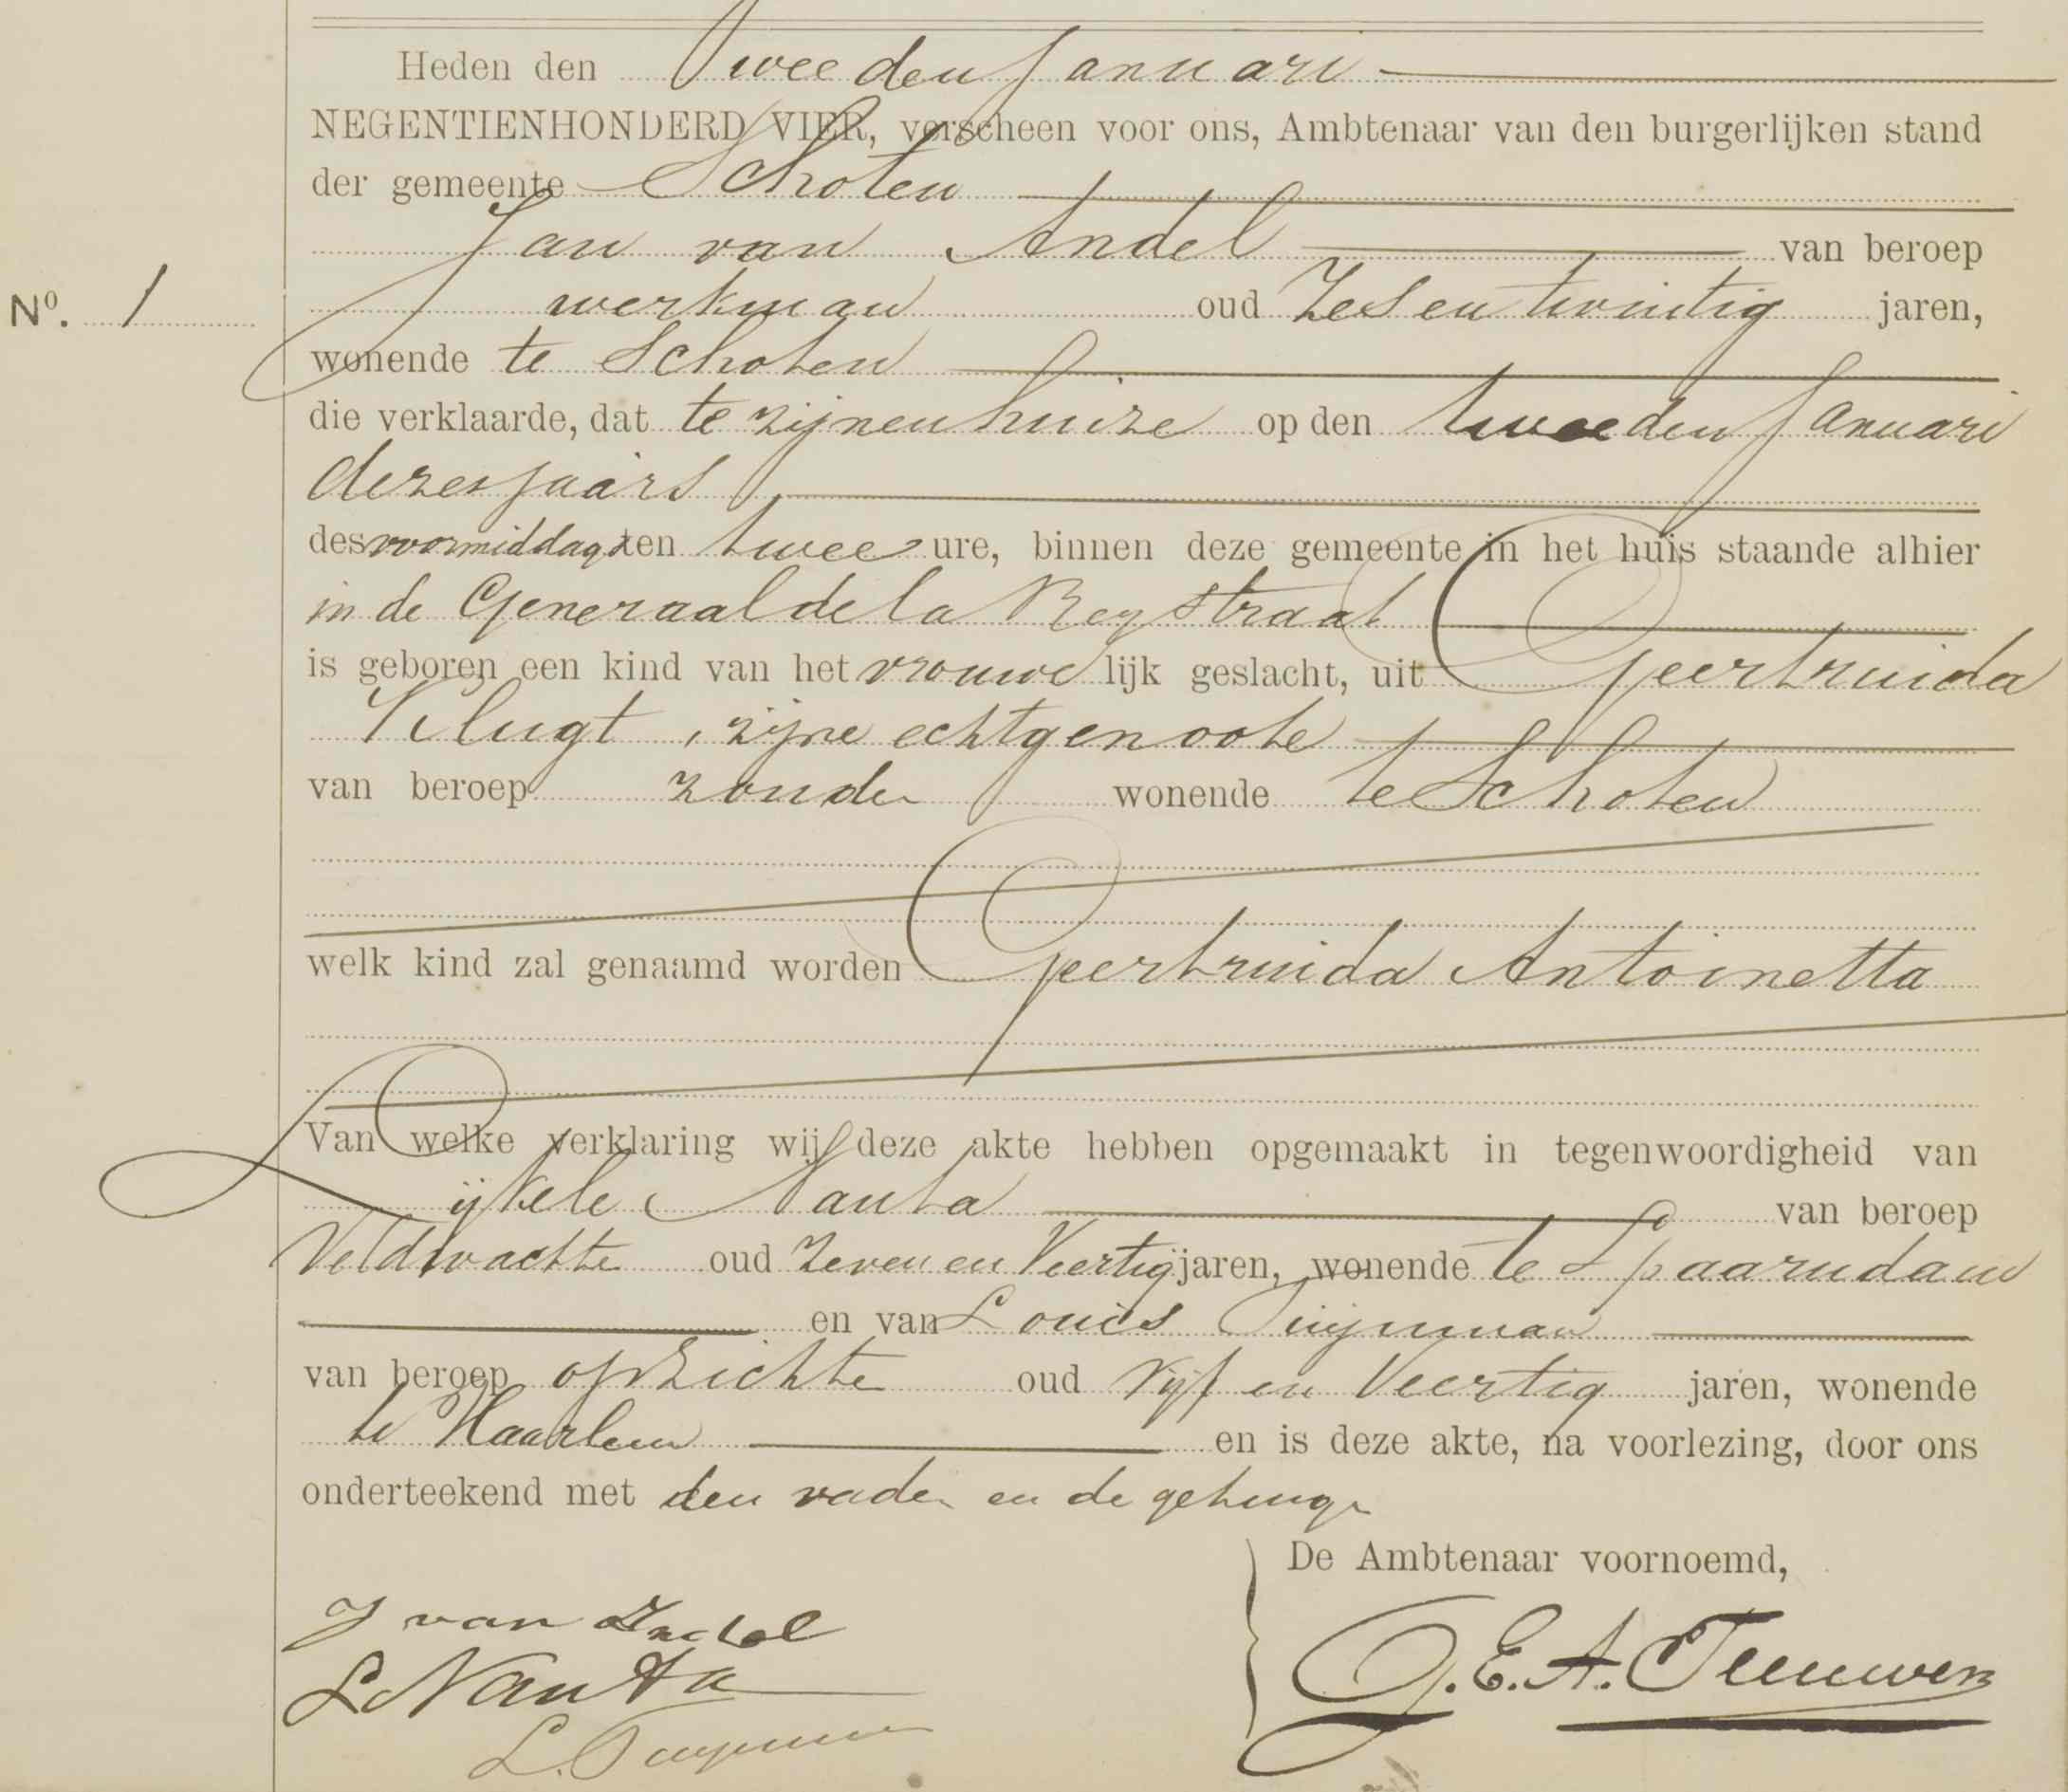 Heden den Tweeden Januari
NEGENTIENHONDERD VIER, verscheen voor ons, Ambtenaar van den burgerlijken stand
der gemeente Schoten
Jan van Andel van beroep
Nº. 1 werkman oud Zes en twintig jaren,
wonende te Schoten
die verklaarde, dat te zijnen huize op den tweeden Januari
dezes jaars
des voormiddags ten twee ure, binnen deze gemeente in het huis staande alhier
in de Generaal de la Reystraat
is geboren een kind van het vrouwelijk geslacht, uit Geertruida
Klugt, zijne echtgenoote
van beroep zonder wonende te Schoten
welk kind zal genaamd worden Geertruida Antoinetta
Van welke verklaring wij deze akte hebben opgemaakt in tegenwoordigheid van
Lijkele Nauta van beroep
Veldwachter oud Zeven en Veertig jaren, wonende te Spaarndam
en van Louis Tuijnman
van beroep opzichter oud Vijf en Veertig jaren, wonende
te Haarlem en is deze akte, na voorlezing, door ons
onderteekend met den vader en de getuigen
De Ambtenaar voornoemd,
J van Andel
L Nauta
G. E. A. Teeuwen
L. Tuijnman